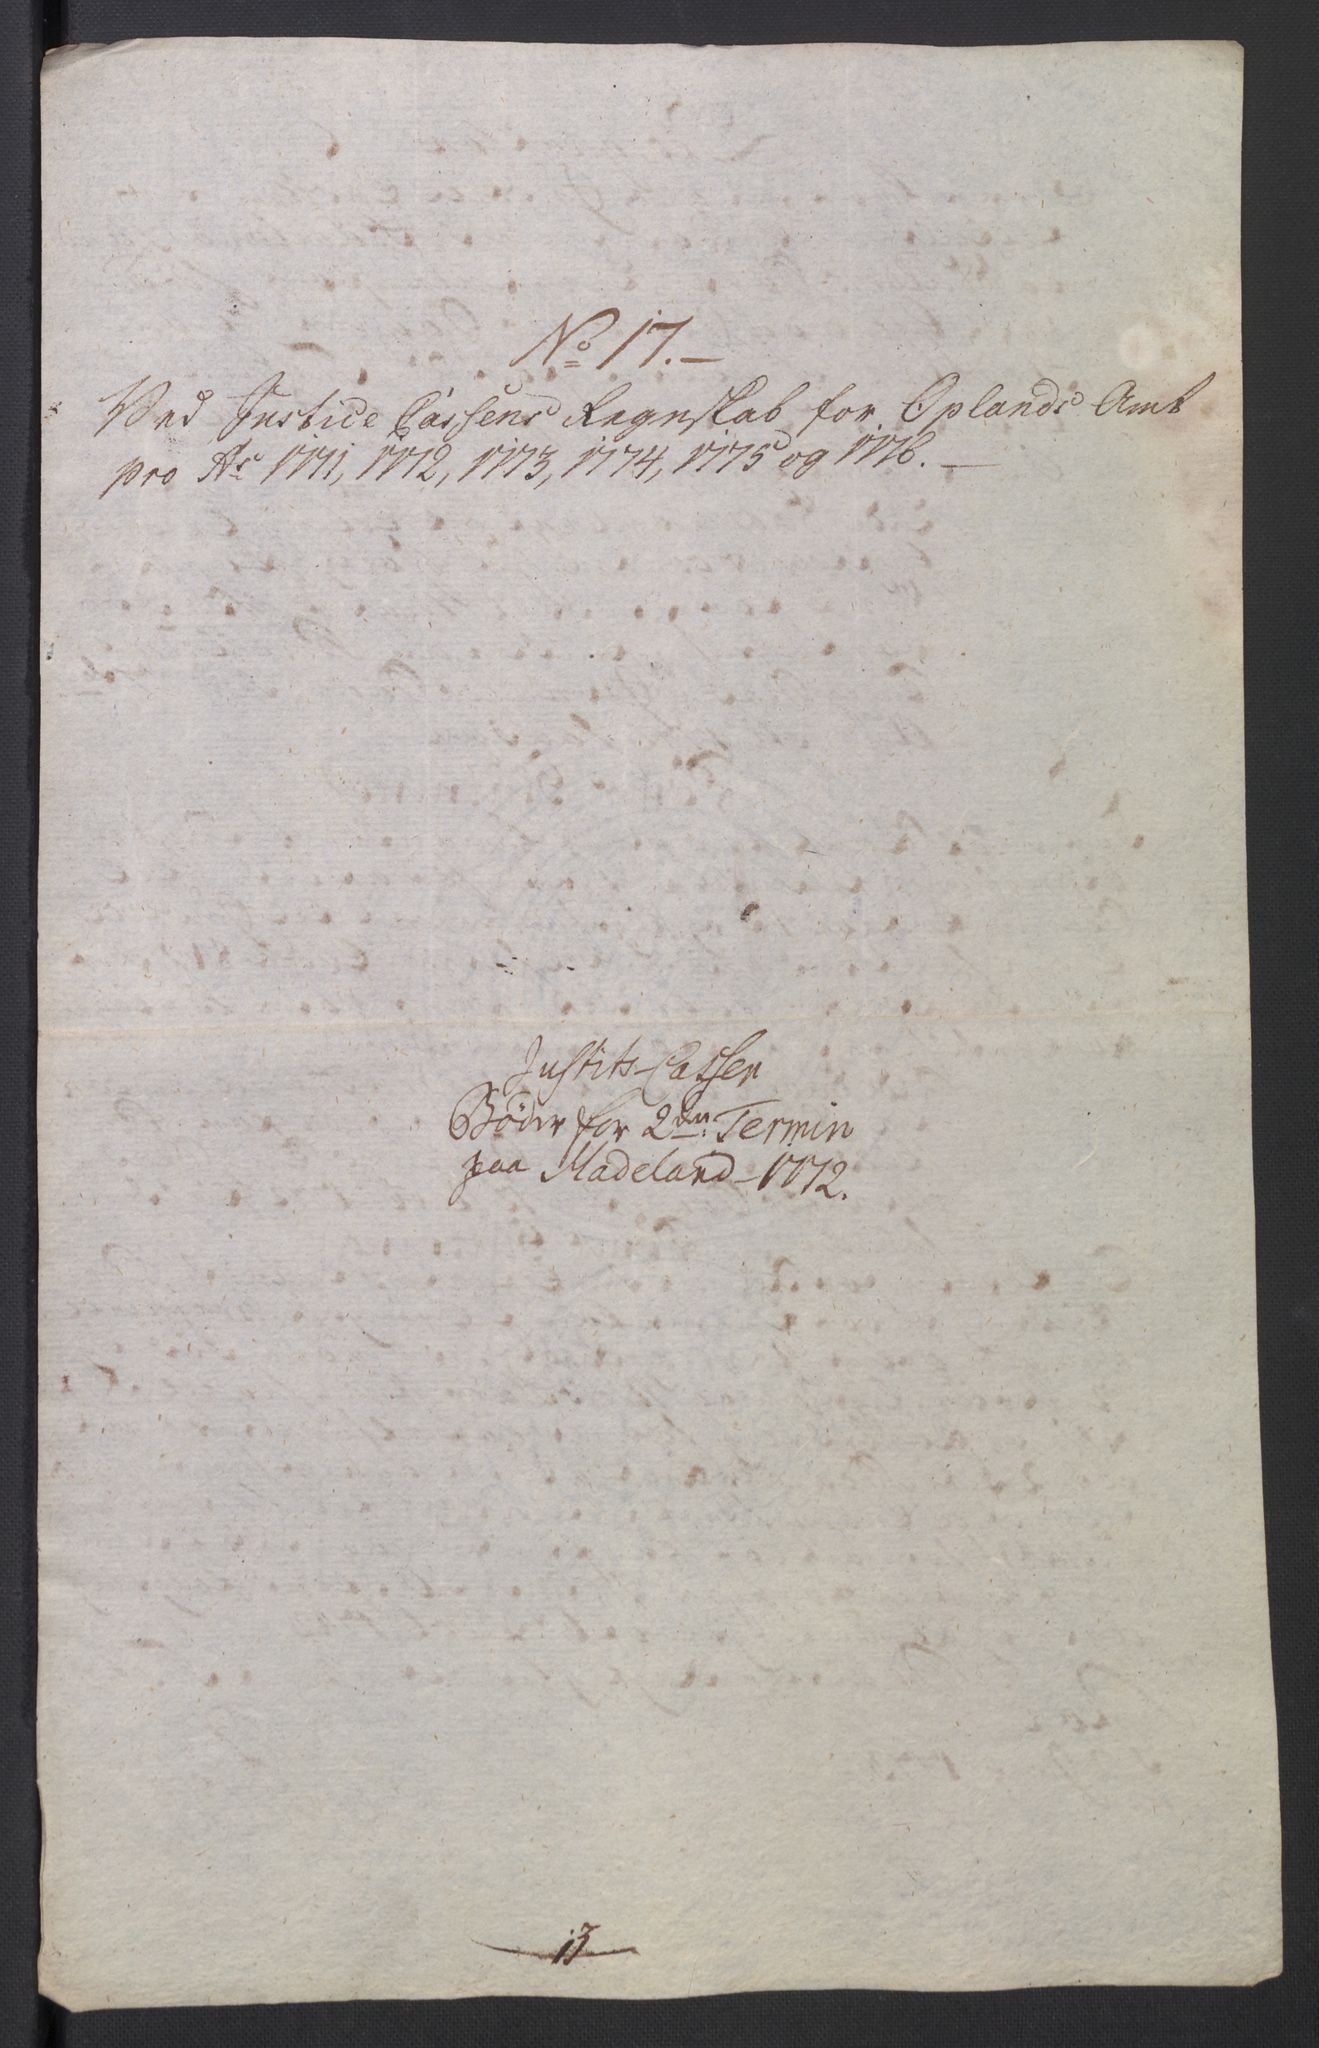 No 17.
Ved Justice Cassens Regnskab for Oplands Amt
pro Ao 1771, 1772, 1773, 1774, 1775 og 1776.
Justits-Casser
Böder for 2den Termin
paa Hadeland 1772.
13